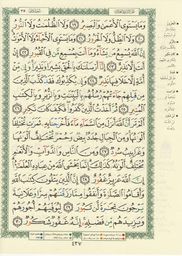 وَمَا يَسْتَوِي الْأَعْمَىٰ وَالْبَصِيرُ ١٩ وَلَا الظُّلُمَاتُ وَلَا النُّورُ
٢٠ وَلَا الظِّلُّ وَلَا الْحَرُورُ ٢١ وَمَا يَسْتَوِي الْأَحْيَاءُ وَلَا الْأَمْوَاتُ
إِنَّ اللَّهَ يُسْمِعُ مَن يَشَاءُ وَمَا أَنتَ بِمُسْمِعٍ مَّن فِي الْقُبُورِ ٢٢
إِنْ أَنتَ إِلَّا نَذِيرٌ ٢٣ إِنَّا أَرْسَلْنَاكَ بِالْحَقِّ بَشِيرًا وَنَذِيرًا وَإِن مِّنْ أُمَّةٍ
إِلَّا خَلَا فِيهَا نَذِيرٌ ٢٤ وَإِن يُكَذِّبُوكَ فَقَدْ كَذَّبَ الَّذِينَ
مِن قَبْلِهِمْ جَاءَتْهُمْ رُسُلُهُم بِالْبَيِّنَاتِ وَبِالزُّبُرِ وَبِالْكِتَابِ الْمُنِيرِ
٢٥ ثُمَّ أَخَذْتُ الَّذِينَ كَفَرُوا فَكَيْفَ كَانَ نَكِيرِ ٢٦ أَلَمْ تَرَ
أَنَّ اللَّهَ أَنزَلَ مِنَ السَّمَاءِ مَاءً فَأَخْرَجْنَا بِهِ ثَمَرَاتٍ مُّخْتَلِفًا
أَلْوَانُهَا وَمِنَ الْجِبَالِ جُدَدٌ بِيضٌ وَحُمْرٌ مُّخْتَلِفٌ أَلْوَانُهَا
وَغَرَابِيبُ سُودٌ ٢٧ وَمِنَ النَّاسِ وَالدَّوَابِّ وَالْأَنْعَامِ
مُخْتَلِفٌ أَلْوَانُهُ كَذَٰلِكَ إِنَّمَا يَخْشَى اللَّهَ مِنْ عِبَادِهِ الْعُلَمَاءُ
إِنَّ اللَّهَ عَزِيزٌ غَفُورٌ ٢٨ إِنَّ الَّذِينَ يَتْلُونَ كِتَابَ اللَّهِ
وَأَقَامُوا الصَّلَاةَ وَأَنفَقُوا مِمَّا رَزَقْنَاهُمْ سِرًّا وَعَلَانِيَةً
يَرْجُونَ تِجَارَةً لَّن تَبُورَ ٢٩ لِيُوَفِّيَهُمْ أُجُورَهُمْ
وَيَزِيدَهُم مِّن فَضْلِهِ إِنَّهُ غَفُورٌ شَكُورٌ ٣٠
٤٣٧